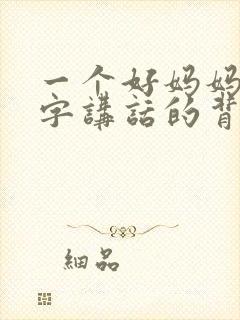 一个好妈妈
字講話的背
細品